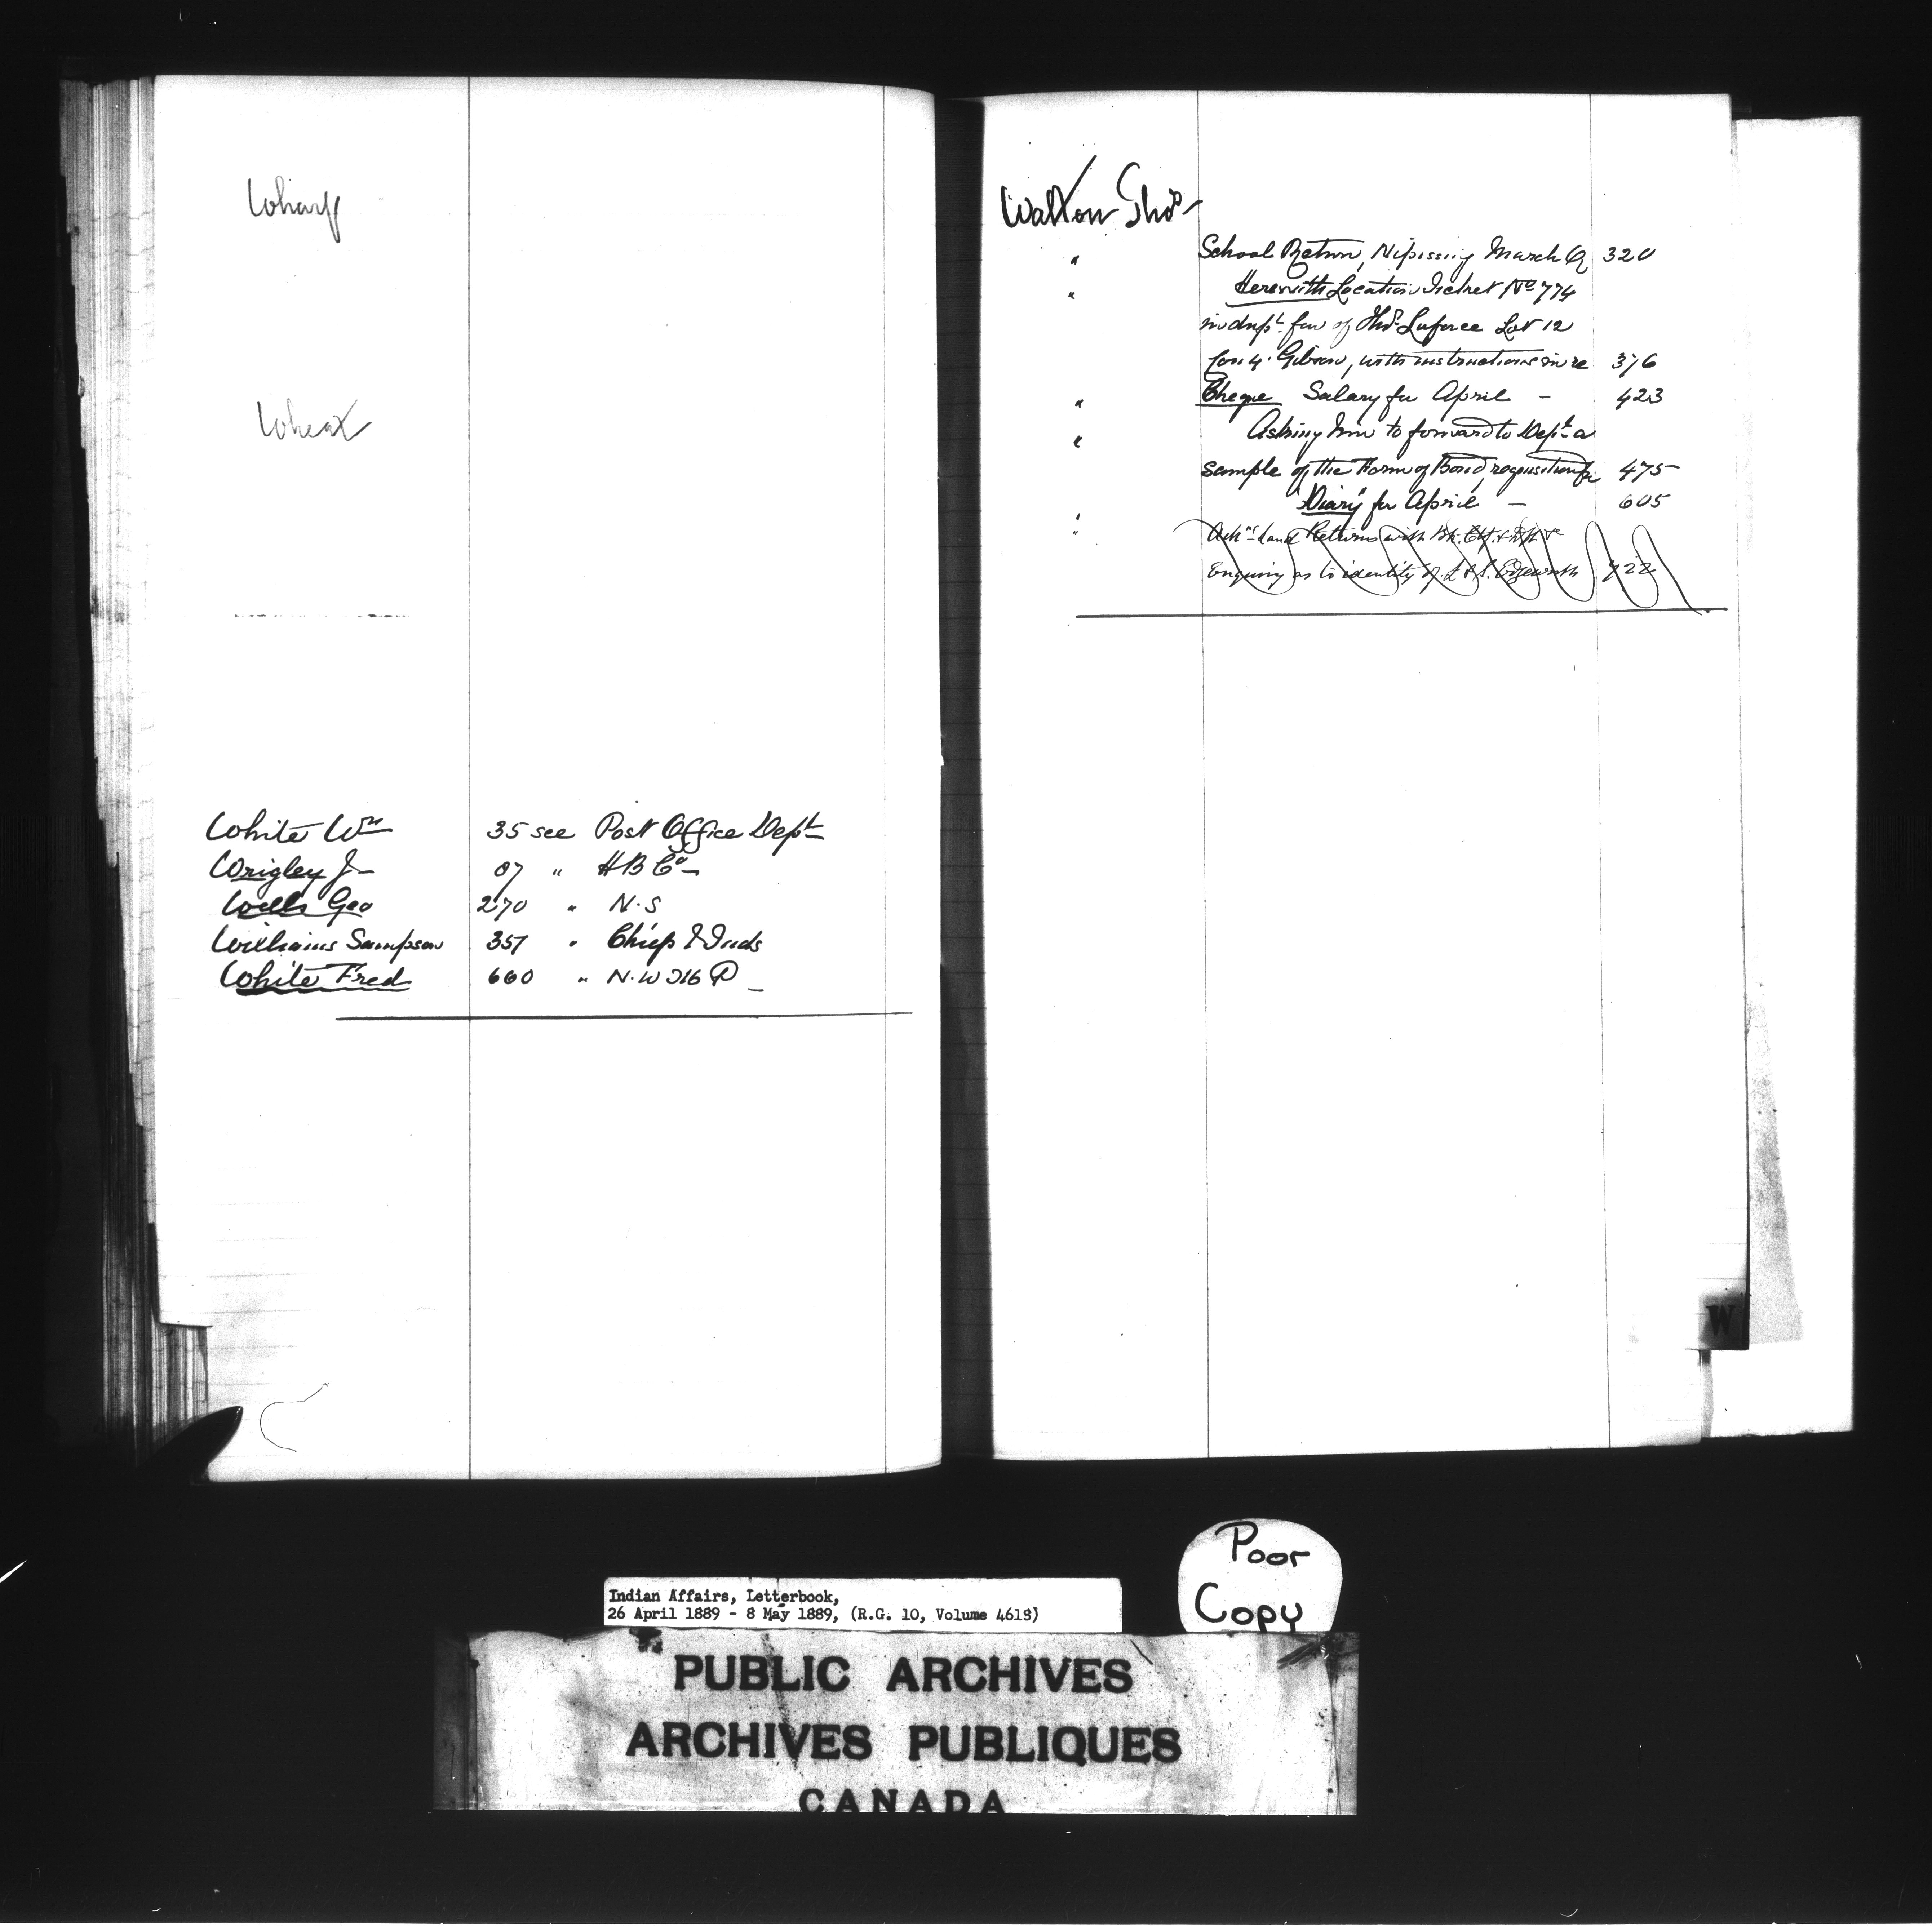 Wharf
Wheat
White Wm 35 see Post Office Dept
Wrigley J 87 " H B Co
Wells Geo 270 " N.S
Williams Sampson 357 " Chiefs & Inds
White Fred 660 " N.W M P
Walton Thos
" School Return, Nipissing March Q 320
" Herewith Location Ticket No 774
in dupt. fav of Thos. Laforce Lot 12
Con 4. Gibson, with instructions in re 376
" Cheque Salary for April - 423
" Asking him to forward to Dept a
sample of the Form of Bond, requisition for 475
" "Diary" for April - 605
" Ack Land Returns with Bk.
Enquiry as to identity of Edgeworth 722
W
Poor
Copy
Indian Affairs, Letterbook,
26 April 1889 - 8 May 1889, (R.G. 10, Volume 4613)
PUBLIC ARCHIVES
ARCHIVES PUBLIQUES
CANADA